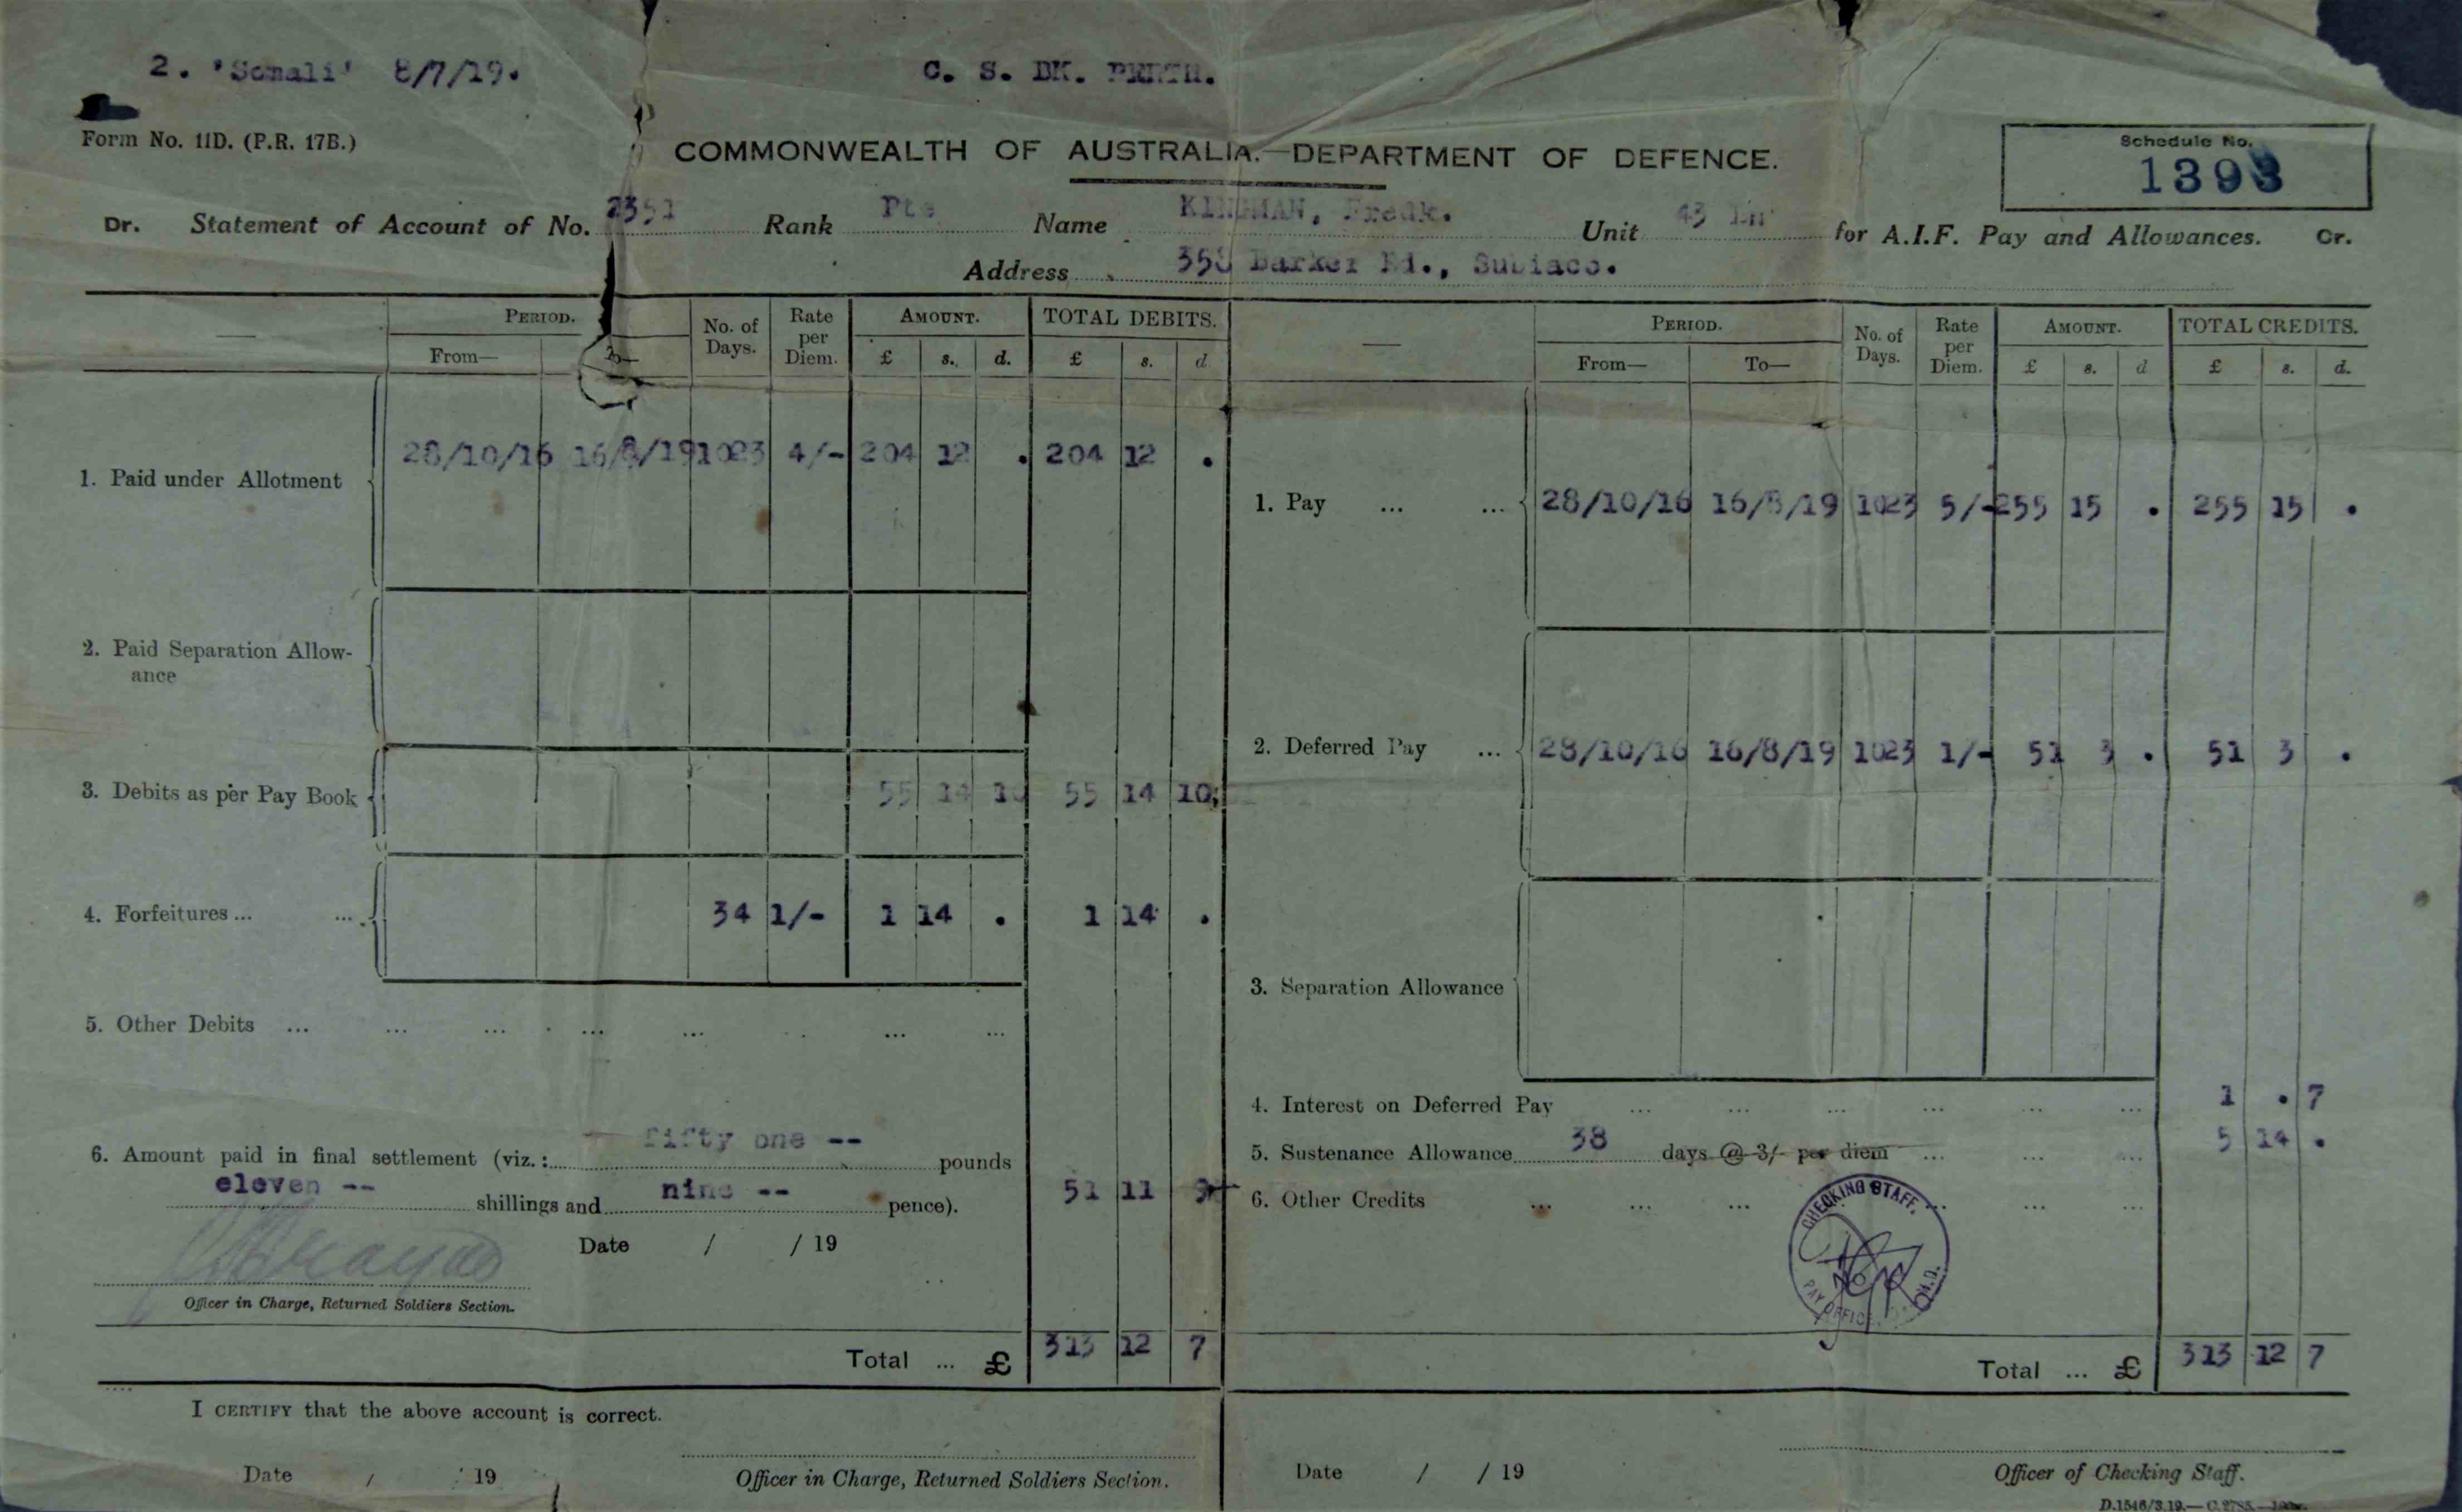 2. 'Somali' 8/7/19.
C. S. BK. PERTH.
Form No. 11D. (P.R. 17B.)
COMMONWEALTH OF AUSTRALIA.—DEPARTMENT OF DEFENCE.
Schedule No.
1393
Dr. Statement of Account of No. 2351 Rank Pte Name KINGMAN, Fredk. Unit 43 Bn for A.I.F. Pay and Allowances. Cr.
Address 358 Barker Rd., Subiaco.
PERIOD. No. of Days. Rate per Diem. AMOUNT. TOTAL DEBITS.
From— To— £ s. d. £ s. d
1. Paid under Allotment 28/10/16 16/8/19 1023 4/- 204 12 . 204 12 .
2. Paid Separation Allow-
ance
3. Debits as per Pay Book 55 14 10 55 14 10
4. Forfeitures ... ... 34 1/- 1 14 . 1 14 .
5. Other Debits ... ... ... ... ... ... ...
6. Amount paid in final settlement (viz.: fifty one -- pounds
eleven -- shillings and nine -- pence). 51 11 9
Date / / 19
Officer in Charge, Returned Soldiers Section.
Total ... £ 313 12 7
I CERTIFY that the above account is correct.
Date / 19
Officer in Charge, Returned Soldiers Section.
PERIOD. No. of Days. Rate per Diem. AMOUNT. TOTAL CREDITS.
From— To— £ s. d £ s. d.
1. Pay ... ... 28/10/16 16/8/19 1023 5/- 255 15 . 255 15 .
2. Deferred Pay ... 28/10/16 16/8/19 1023 1/- 51 3 . 51 3 .
3. Separation Allowance
4. Interest on Deferred Pay ... ... ... ... ... ... 1 . 7
5. Sustenance Allowance 38 days @ 3/- per diem ... ... ... 5 14 .
6. Other Credits ... ... ... ... ... ...
CHECKING STAFF.
PAY OFFICE
Total ... £ 313 12 7
Date / / 19
Officer of Checking Staff.
D.1546/3.19.—